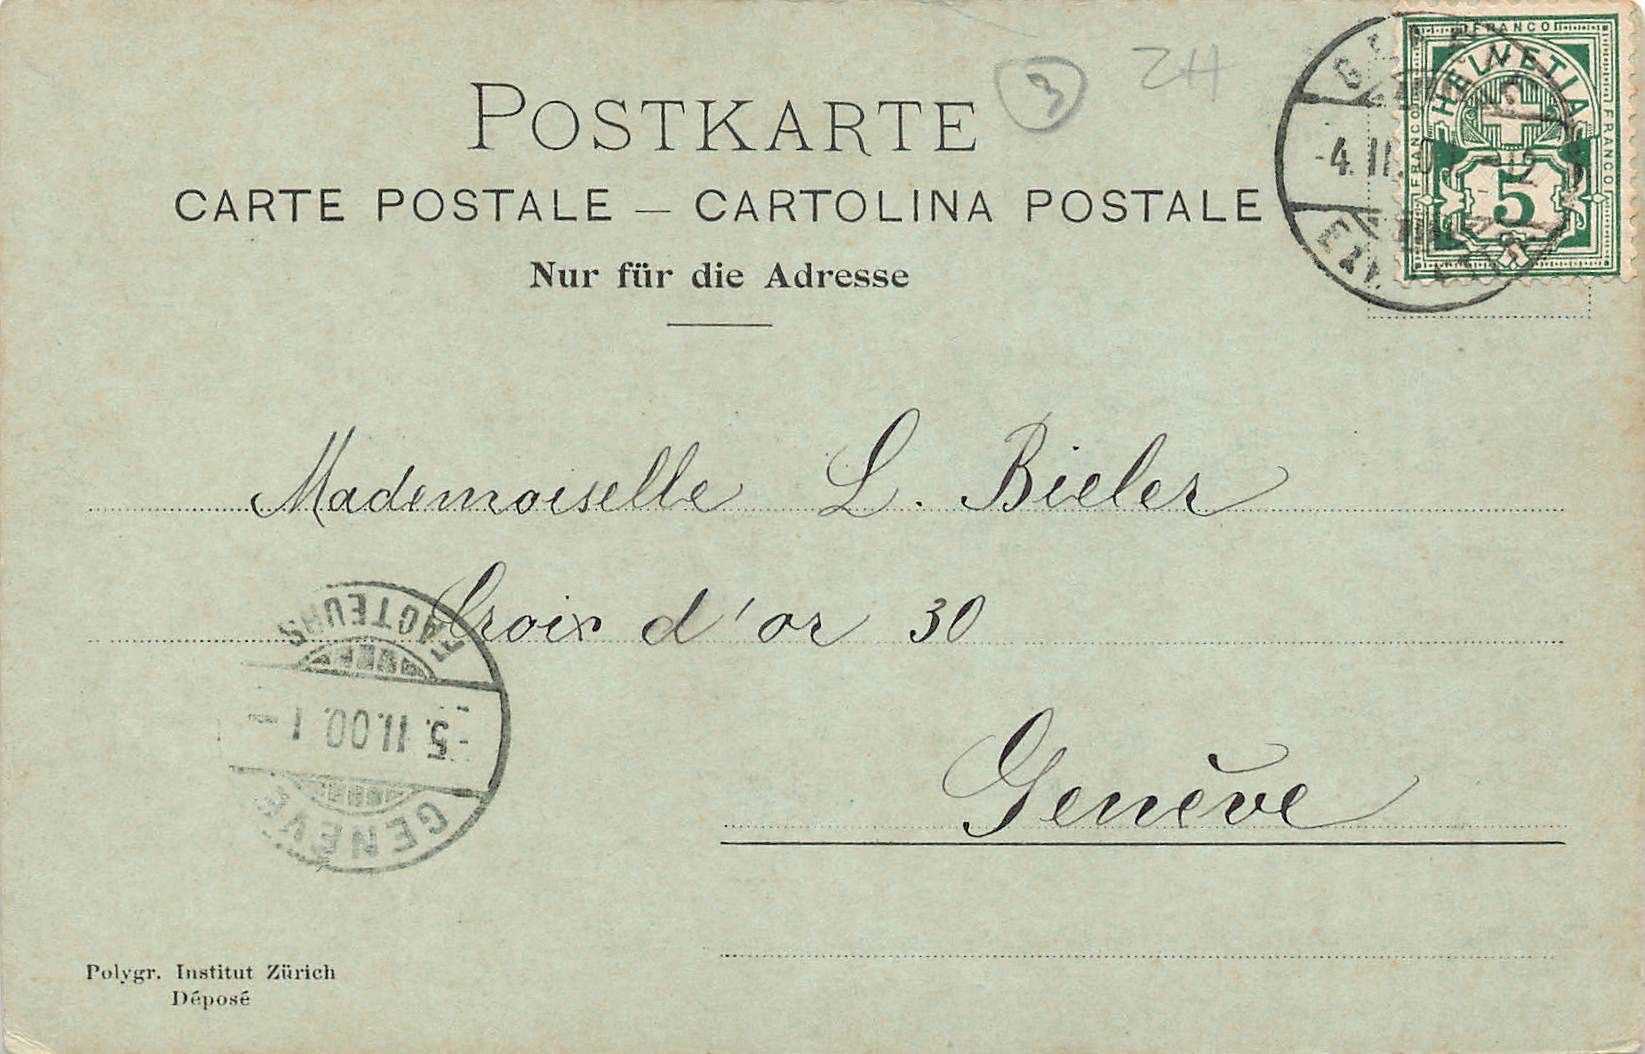 POSTKARTE
3
ZH
CARTE POSTALE — CARTOLINA POSTALE
Nur für die Adresse
FRANCO
HELVETIA
FRANCO
FRANCO
5
-4. II.
Mademoiselle L. Bieler
Croix d'or 30
Genève
FACTEURS
-5. II. 00. I-
GENÈVE
Polygr. Institut Zürich
Déposé